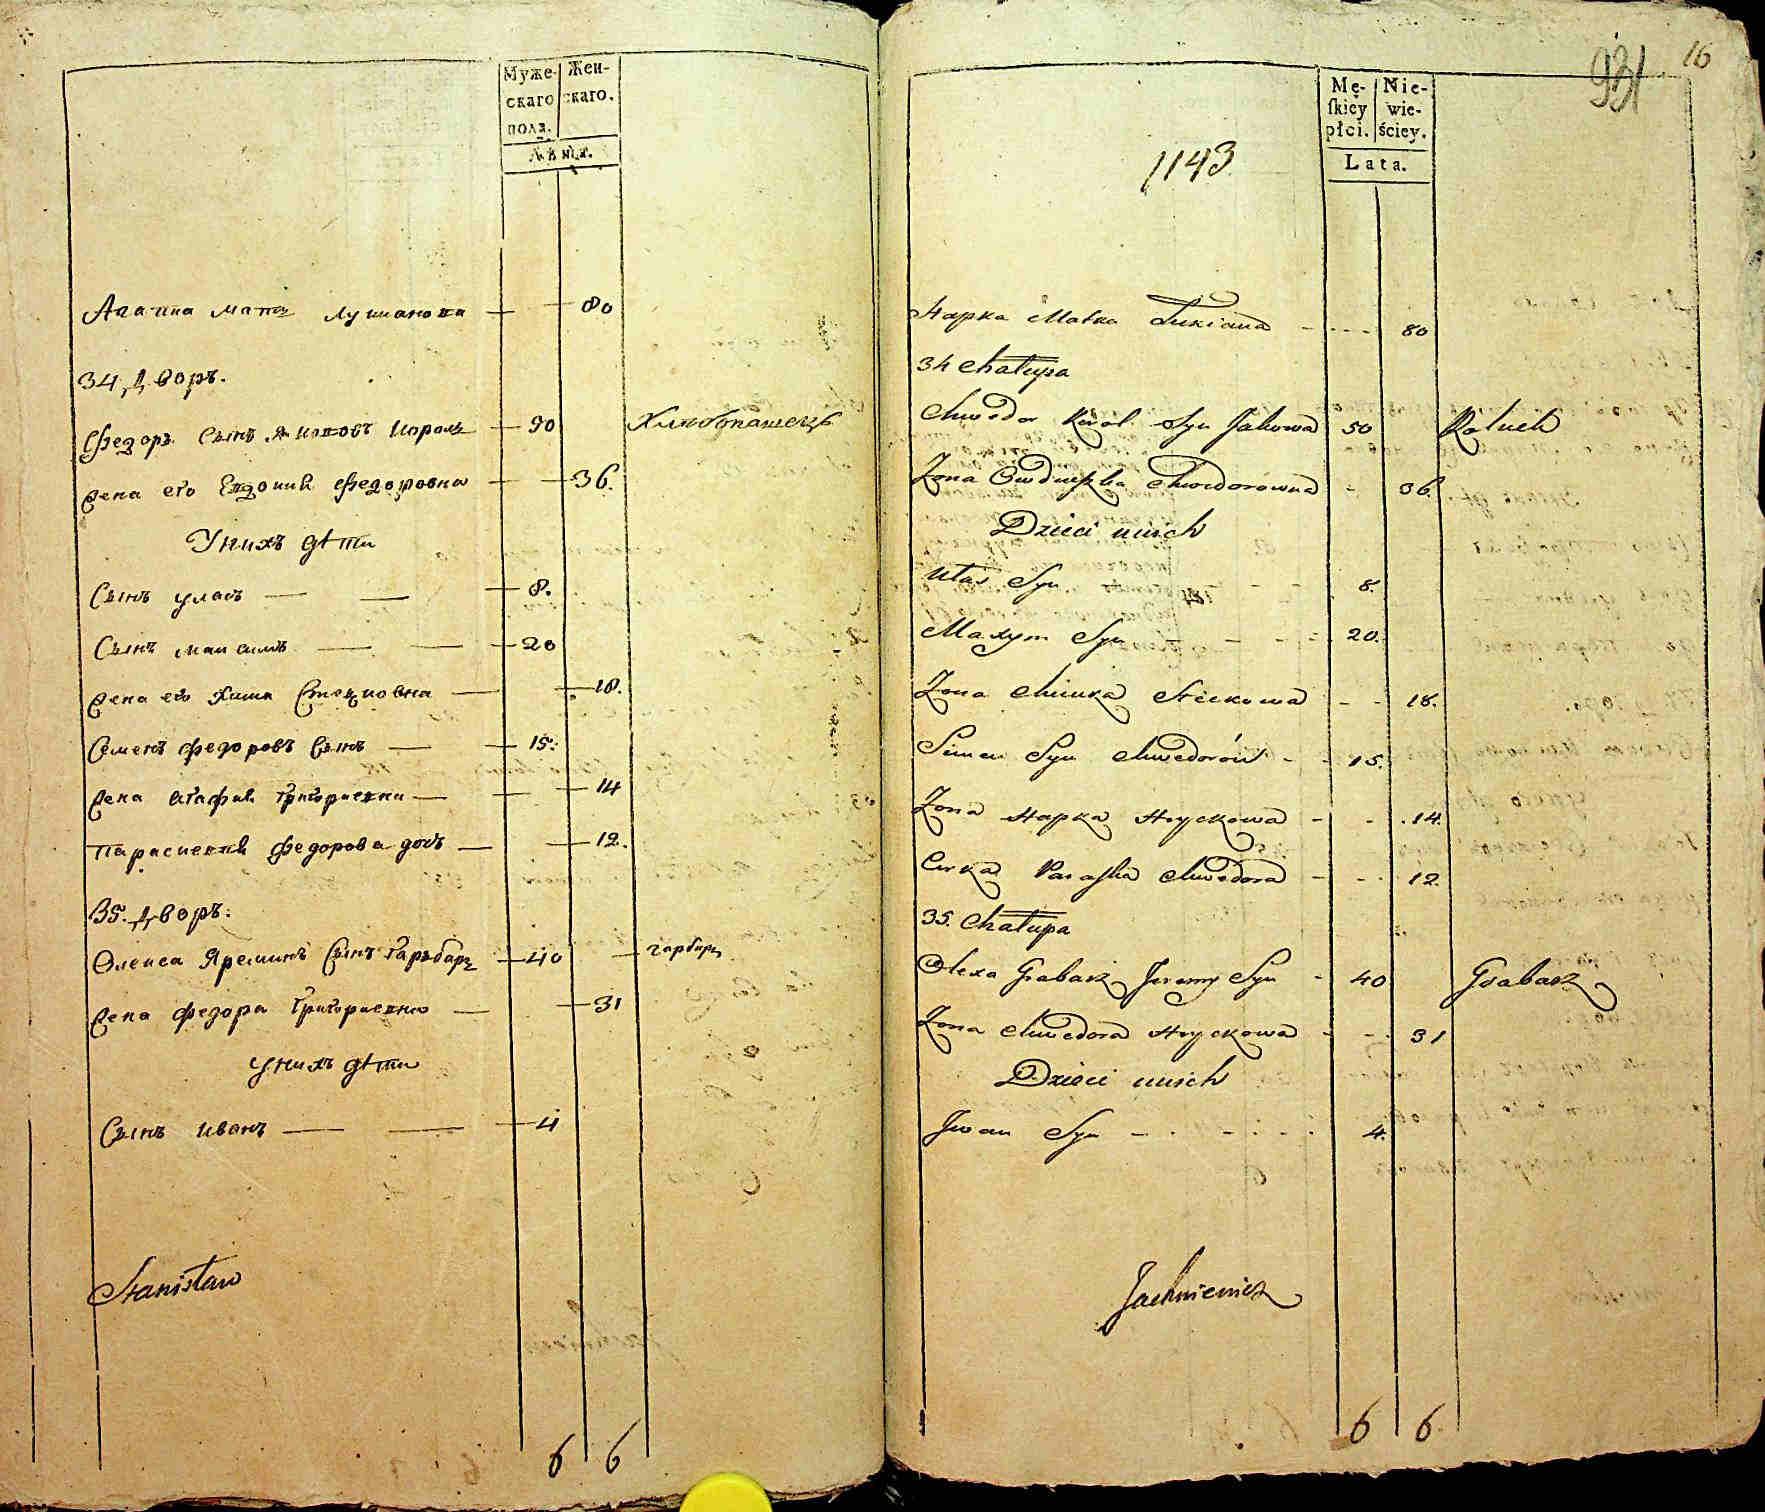 Муже-
скаго
пола.
Жен-
скаго.
Лѣта.
Агапка мать Лукианова 80
34 Дворъ.
Федоръ Сынъ Якововъ Король 50 Хлѣбопашецъ
Жена его Евдокия Федоровна 36.
У нихъ дѣти
Сынъ Уласъ 8.
Сынъ Максимъ 20
Жена его Химка Стецковна 18.
Семенъ Федоровъ Сынъ 15.
Жена Агафия Григориевна 14
Параскевия Федорова дочь 12.
35. Дворъ.
Олекса Яреминъ Сынъ Гарбарь 40 гарбарь
Жена Федора Григориевна 31
У нихъ дѣти
Сынъ Иванъ 4
Stanisław
6 6
931 16
Mę-
ſkiey
płci.
Nie-
wie-
ściey.
Lata.
1143
Hapka Matka Łukiana 80
34 Chałupa
Chwedor Korol Syn Jakowa 50 Rolnik
Żona Owduszka Chwedorowna 36.
Dzieci nuich
Ułas Syn 8.
Maxym Syn 20.
Żona Chimka Steckowa 18.
Simen Syn Chwedorów 15.
Żona Hapka Hryckowa 14.
Curka Paraſka Chwedora 12.
35. Chałupa
Olexa Grabarz Jeremy Syn 40 Grabarz
Żona Chwedora Hryckowa 31
Dzieci nuich
Jwan Syn 4.
Jachniewicz
6 6